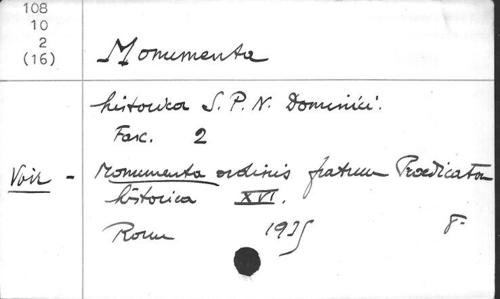 108
10
2
(16)
Monumenta
historica S. P. N. Dominici.
Fasc. 2
Voir - Monumenta ordinis fratrum Praedicator
historica XVI.
Rome 1935 8°